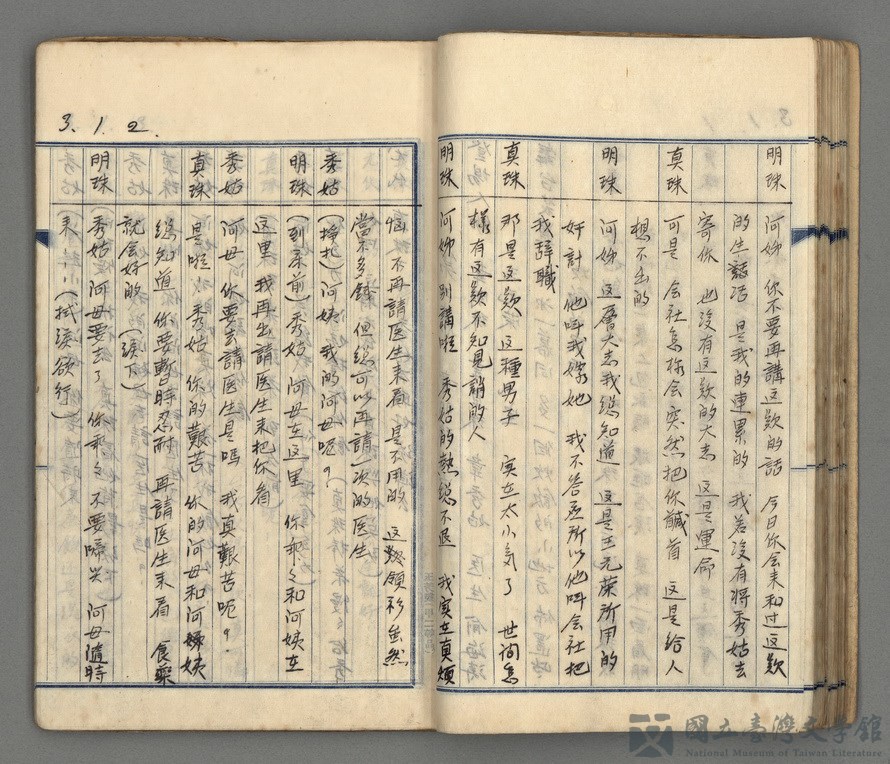 明珠 阿姊 你不要再講這欵的話 今日你会来和过這欵
的生活 是我的連累的 我若没有将秀姑去
寄你 也没有这欵的大志 这是運命
真珠 可是 会社怎樣会突然把你馘首 這是給人
想不出的
明珠 阿姊 這層大志我總知道 这是王元荣所用的
奸計 他叫我嫁她 我不答应所以他叫会社把
我辞職
真珠 那是这欵 这種男子 実在太小気了 世间怎
樣有这欵不知見誚的人
明珠 阿姊 別講啦 秀姑的熱總不退 我実在真煩
悩 不再請医生来看 是不用的 這 領衫虽然
當不多錢 但總可以再請一次的医生
秀姑 (掙扎) 阿姨 我的阿母呢?
明珠 (到床前) 秀姑 阿母在这里 你乖々和阿姨在
这里 我再出請医生来把你看
秀姑 阿母 你要去請医生是嗎 我真艱苦呢?
真珠 是啦 秀姑 你的艱苦 你的阿母和阿姨
總知道 你要暫時忍耐 再請医生来看 食藥
就会好的 (淚下)
明珠 秀姑 阿母要去了 你乖々 不要啼哭 阿母隨時
来‥‥(拭淚欲行)
3. 1. 2.
國立臺灣文學館
National Museum of Taiwan Literature